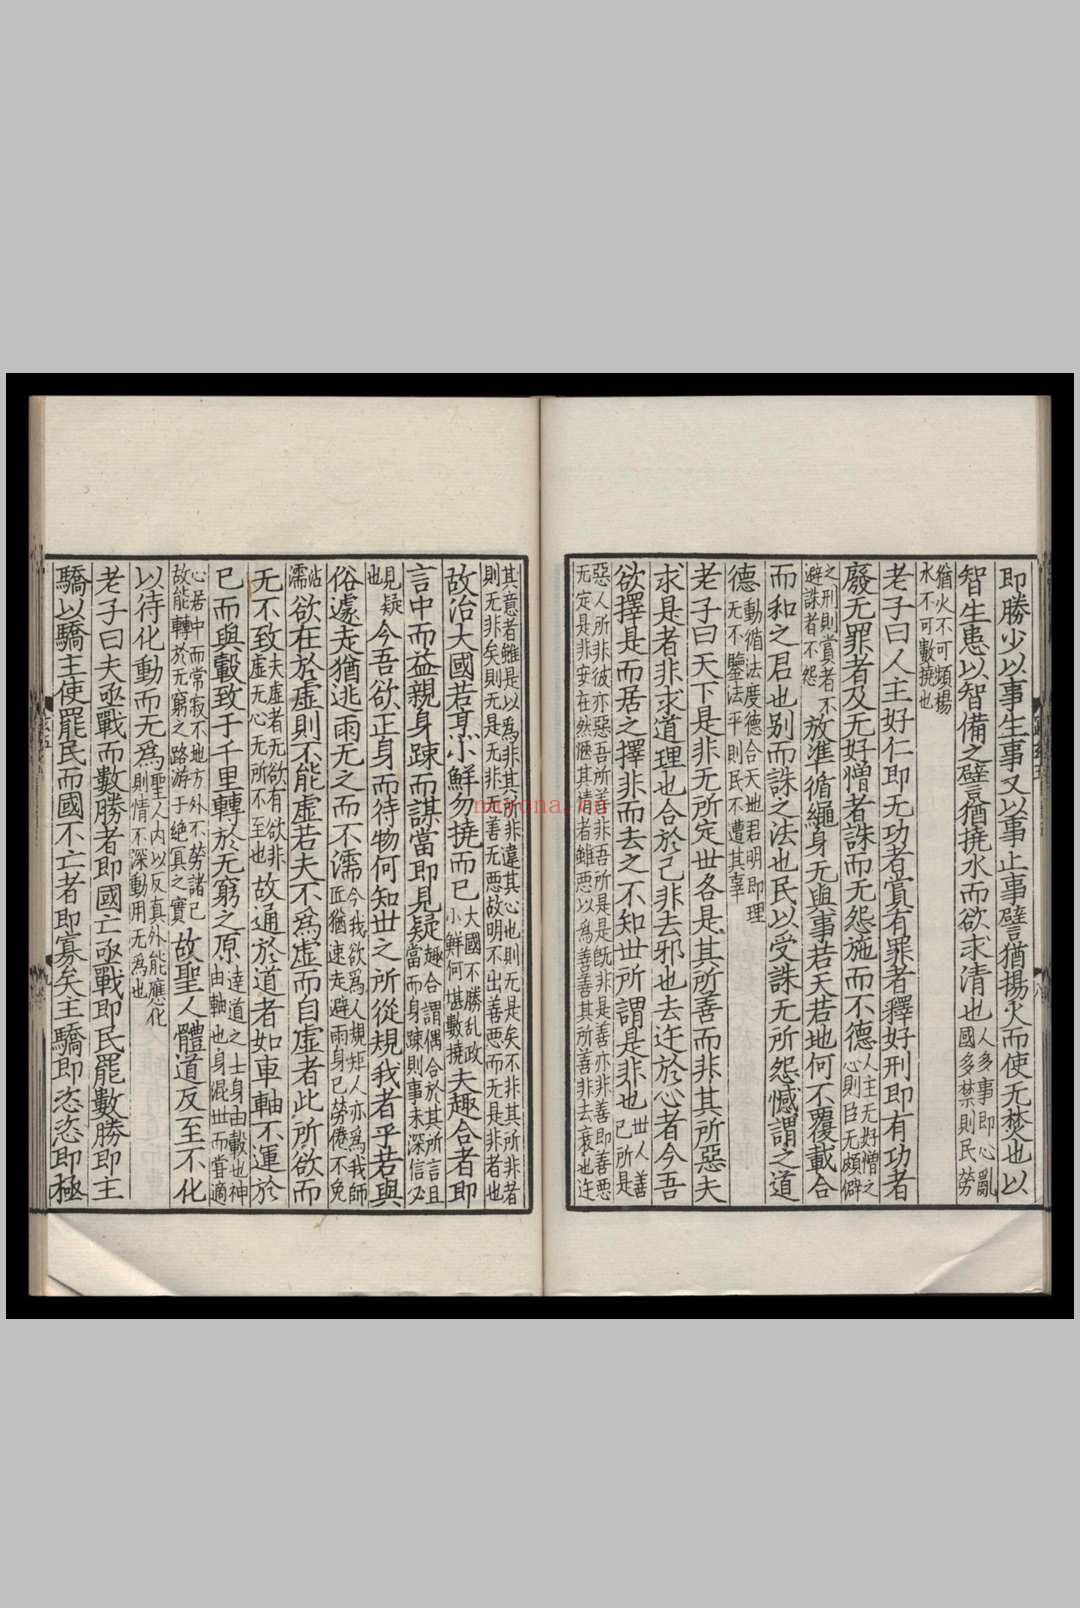 即勝少以事生事又以事止事譬猶揚火而使无焚也以
智生患以智備之譬猶撓水而欲求清也人多事即心亂國多禁則民勞
猶火不可頻揚水不可數撓也
老子曰人主好仁即无功者賞有罪者釋好刑即有功者
廢无罪者及无好憎者誅而无怨施而不德人主无好憎之心則臣无頗僻
之刑則賞者不避誅者不怨放準循繩身无與事若天若地何不覆載合
而和之君也别而誅之法也民以受誅无所怨憾謂之道
德動循法度德合天地君明即理无不鑒法平則民不遭其辜
老子曰天下是非无所定世各是其所善而非其所惡夫
求是者非求道理也合於己非去邪也去迕於心者今吾
欲擇是而居之擇非而去之不知世所謂是非也世人善己所是
惡人所非彼亦惡吾所善非吾所是是既非是善亦非善即善惡无定是非安在然愜其情者雖惡以為善善其所善非去衰也迕
其意者雖是以爲非其所非違其心也則无是矣不非其所非者則无非矣則无是无非无善无惡故明不出善惡而无是非者也
故治大國若烹小鮮勿撓而已大國不勝亂政小鮮何堪數撓夫趣合者即
言中而益親身踈而謀當即見疑趣合謂偶合於其所言且當而身踈則事未深信必
見疑也今吾欲正身而待物何知世之所從規我者乎若與
俗遽走猶逃雨无之而不濡今我欲爲人規矩人亦爲我師匠猶速走避雨身已勞倦不免
沾濡欲在於虛則不能虛若夫不爲虛而自虛者此所欲而
无不致夫虛者无欲有欲非虛无心无所不至也故通於道者如車軸不運於
已而與轂致于千里轉於无窮之原達道之士身由載也神由軸也身混世而嘗適
心居中而常寂不地方外不勞諸己故能轉於无窮之路游于绝冥之實故聖人體道反至不化
以待化動而无爲聖人内以反真外能應化則情不深動用无爲也
老子曰夫亟戰而數勝者即國亡亟戰即民罷數勝即主
驕以驕主使罷民而國不亡者即寡矣主驕即恣恣即極
nayona.cn